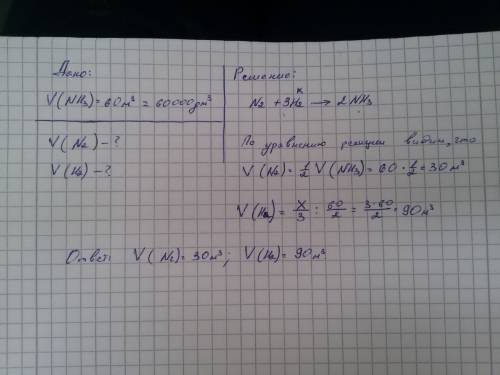 Дано:
V(NH₃)=60м³ = 60000дм³
V(N₂)-?
V(H₂)-?
Решение:
к
N₂ + 3H₂ → 2NH₃
По уравнению реакции видим, что
V(N₂)=1/2 V(NH₃)= 60 · 1/2 = 30 м³
V(H₂)= x/3 : 60/2 = 3·60/2 = 90м³
Ответ: V(N₂)= 30м³; V(H₂)= 90м³